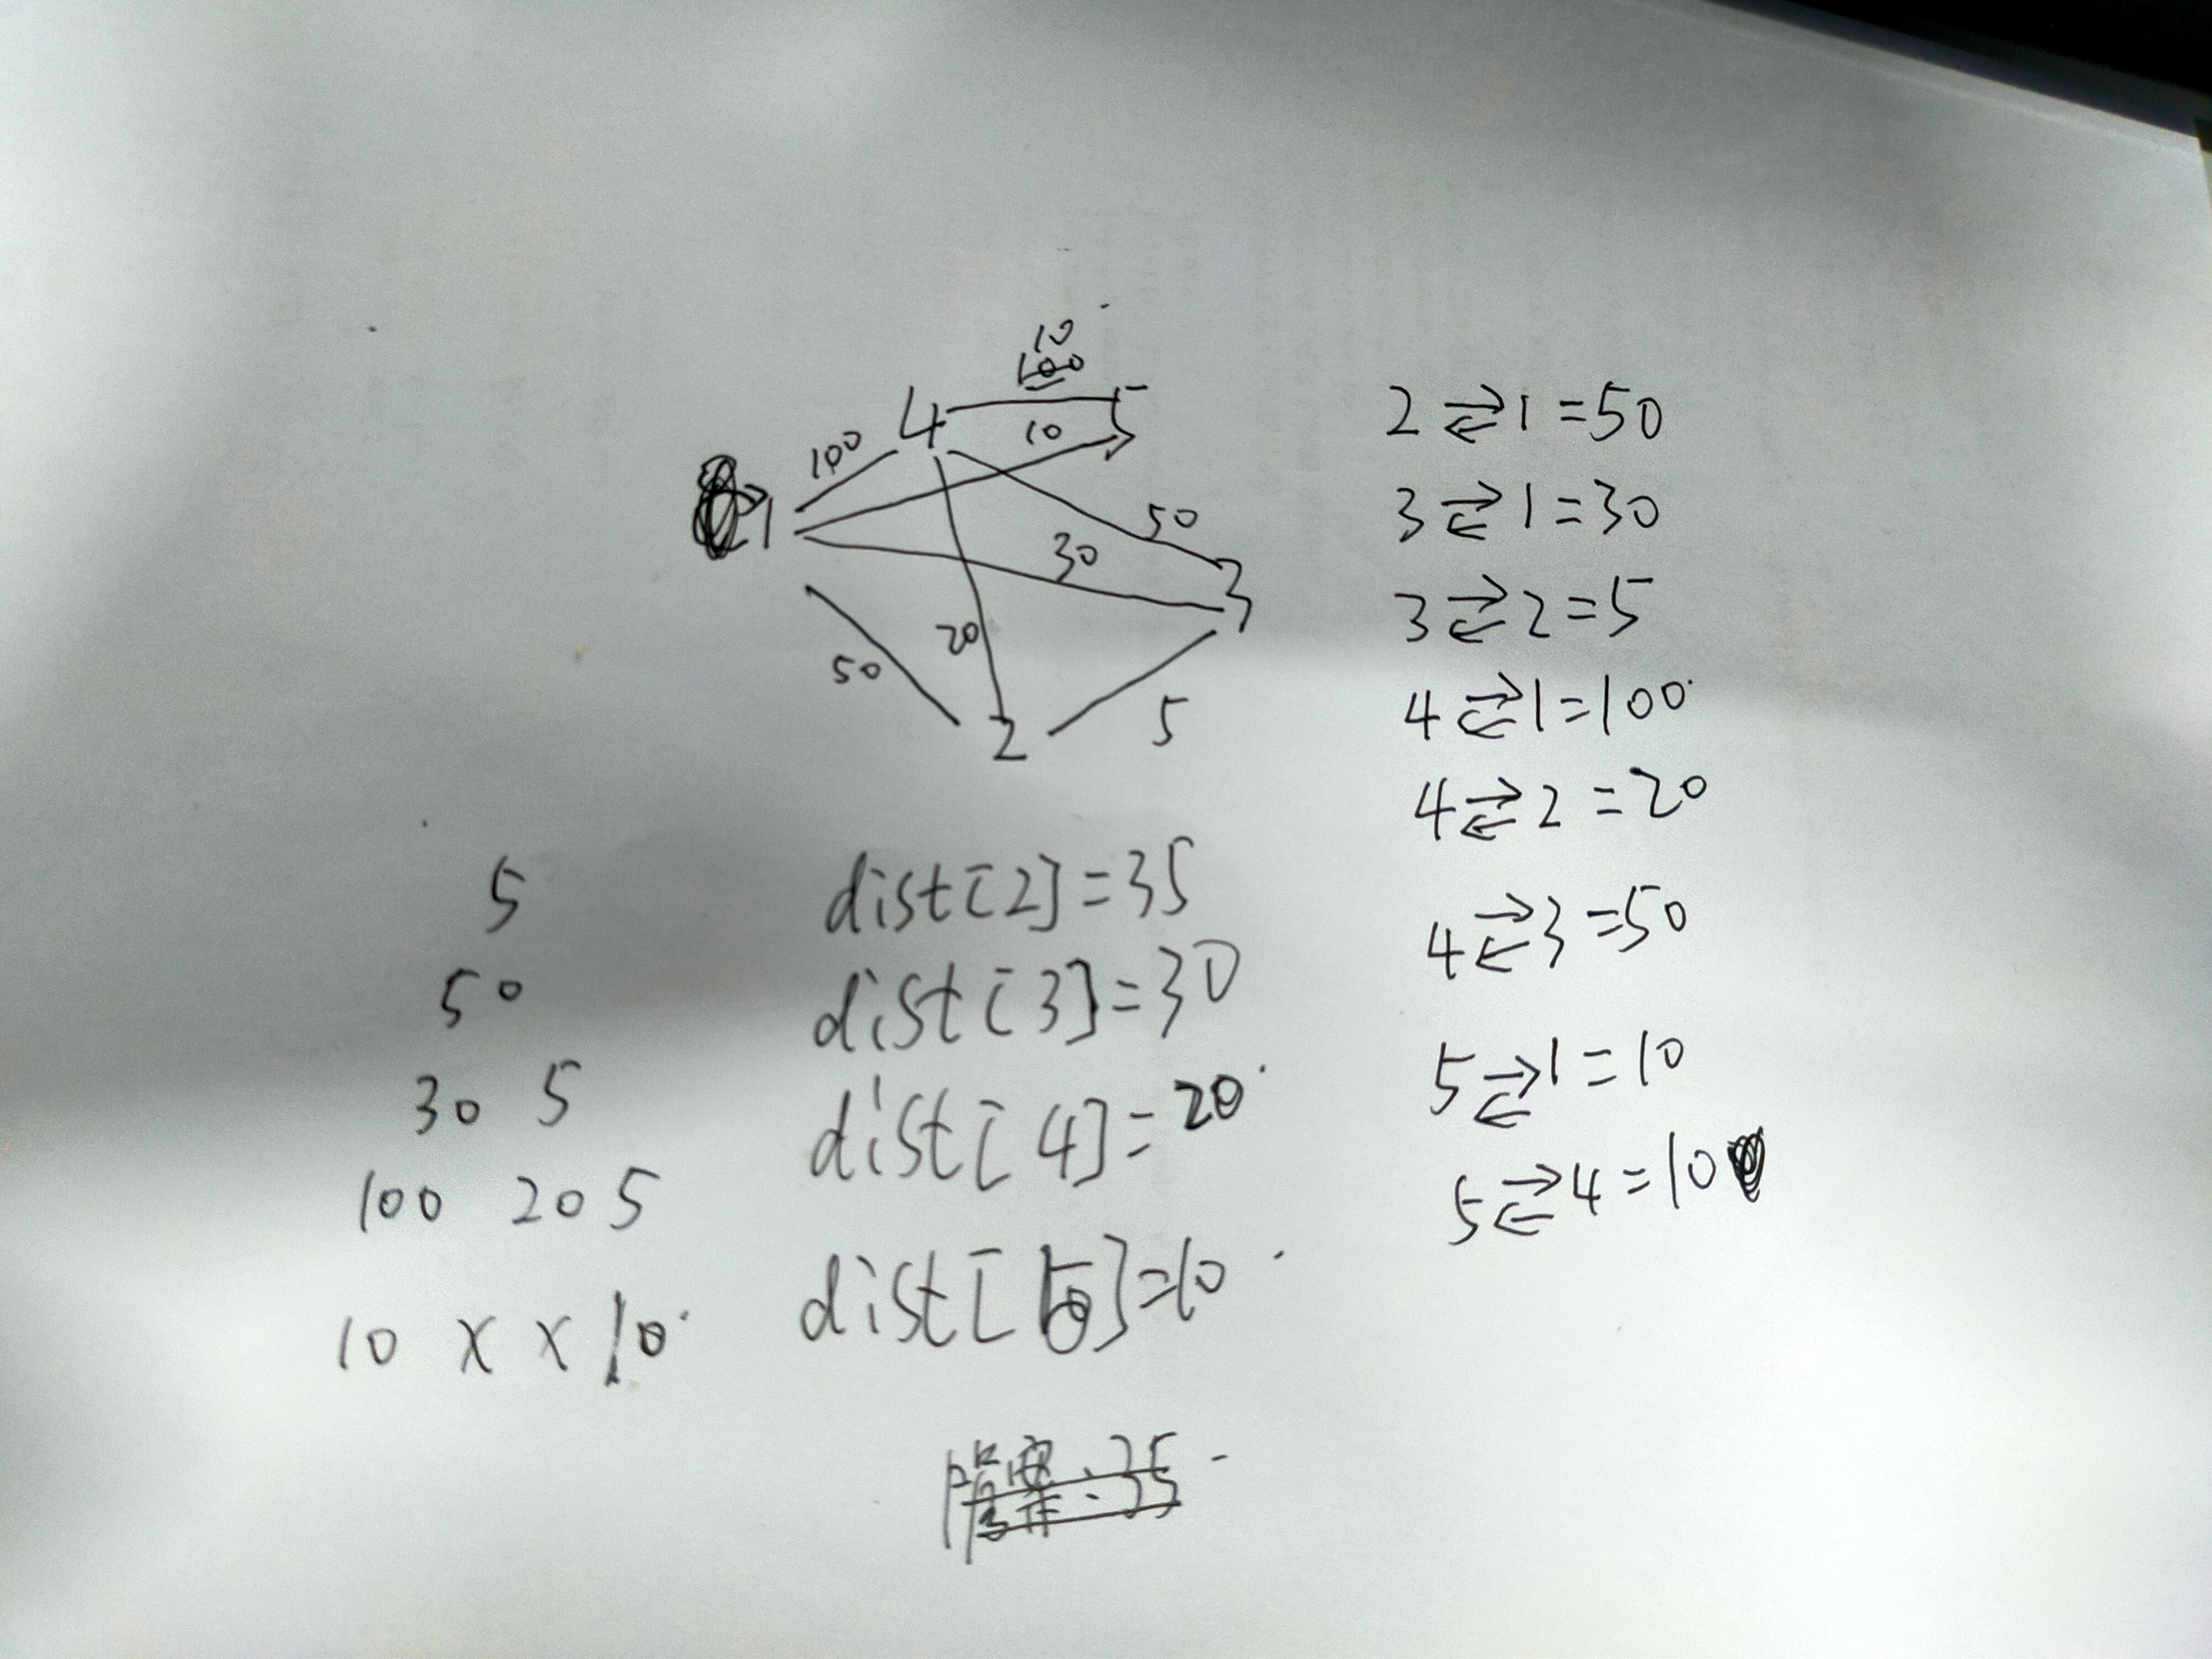 10
100
4 5
100 10
1
50
30
3
20
50
2
5
2⇄1=50
3⇄1=30
3⇄2=5
4⇄1=100
4⇄2=20
4⇄3=50
5⇄1=10
5⇄4=10
5
50
30 5
100 20 5
10 x x 10
dist[2]=35
dist[3]=30
dist[4]=20
dist[5]=10
答案:35